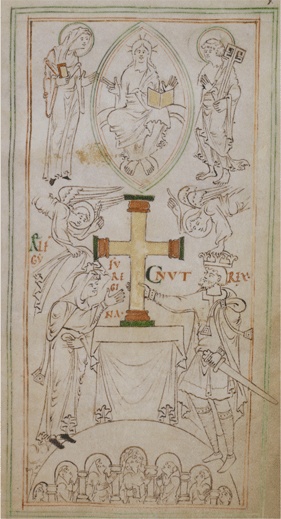 ÆLF
GY
FV
RE
GI
NA·
CNUT REX